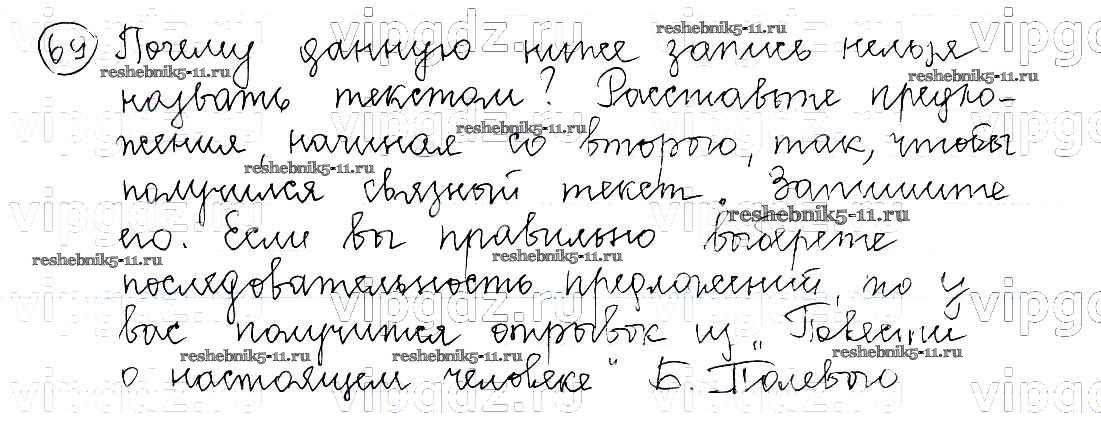 69 Почему данную ниже запись нельзя
назвать текстом? Расставьте предло-
жения, начиная со второго, так, чтобы
получился связный текст. Запишите
его. Если вы правильно выберете
последовательность предложений, то у
вас получится отрывок из „Повести
о настоящем человеке" Б. Полевого
reshebnik5-11.ru
vipgdz.ru